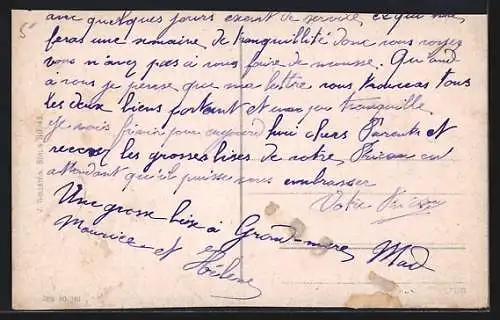 quelques jours exempt de service ce qui me
feras une semaine de tranquillité donc vous voyez
vous n'avez pas à vous faire de mousse. Quand
à vous je pense que ma lettre vous trouveras tous
les deux biens portant et tranquille
Je vais finir pour aujourd'hui chers Parents et
recevez les grosses bises de votre en
attendant qu'il puisse vous embrasser
Votre
Une grosse bise à Grand-mère, Mad
Maurice et
Hélène